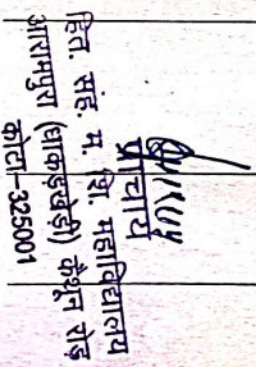 प्राचार्य
हित. सह. म. शि. महाविद्यालय
आरामपुरा (धाकडखेडी) कैथून रोड़
कोटा-325001